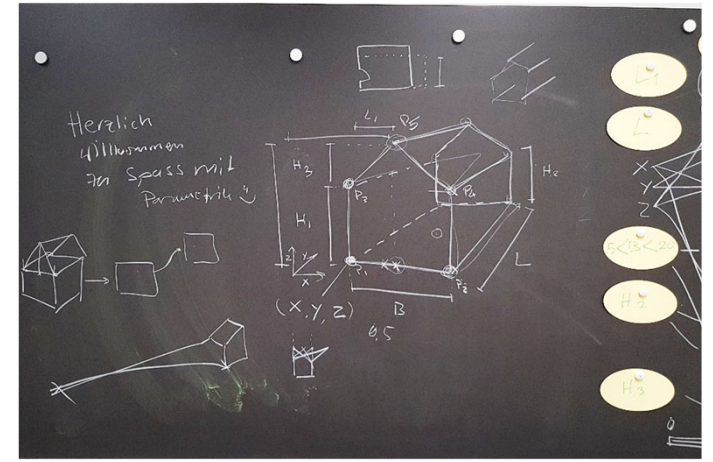 Herzlich
Willkommen
zu Spass mit
Parametrik
L1
P5
H3
P3
P4
H2
H1
Z
Y
X
P1
P2
L
(X, Y, Z)
B
0.5
L1
L
X
Y
Z
5<B<20
H2
H3
0